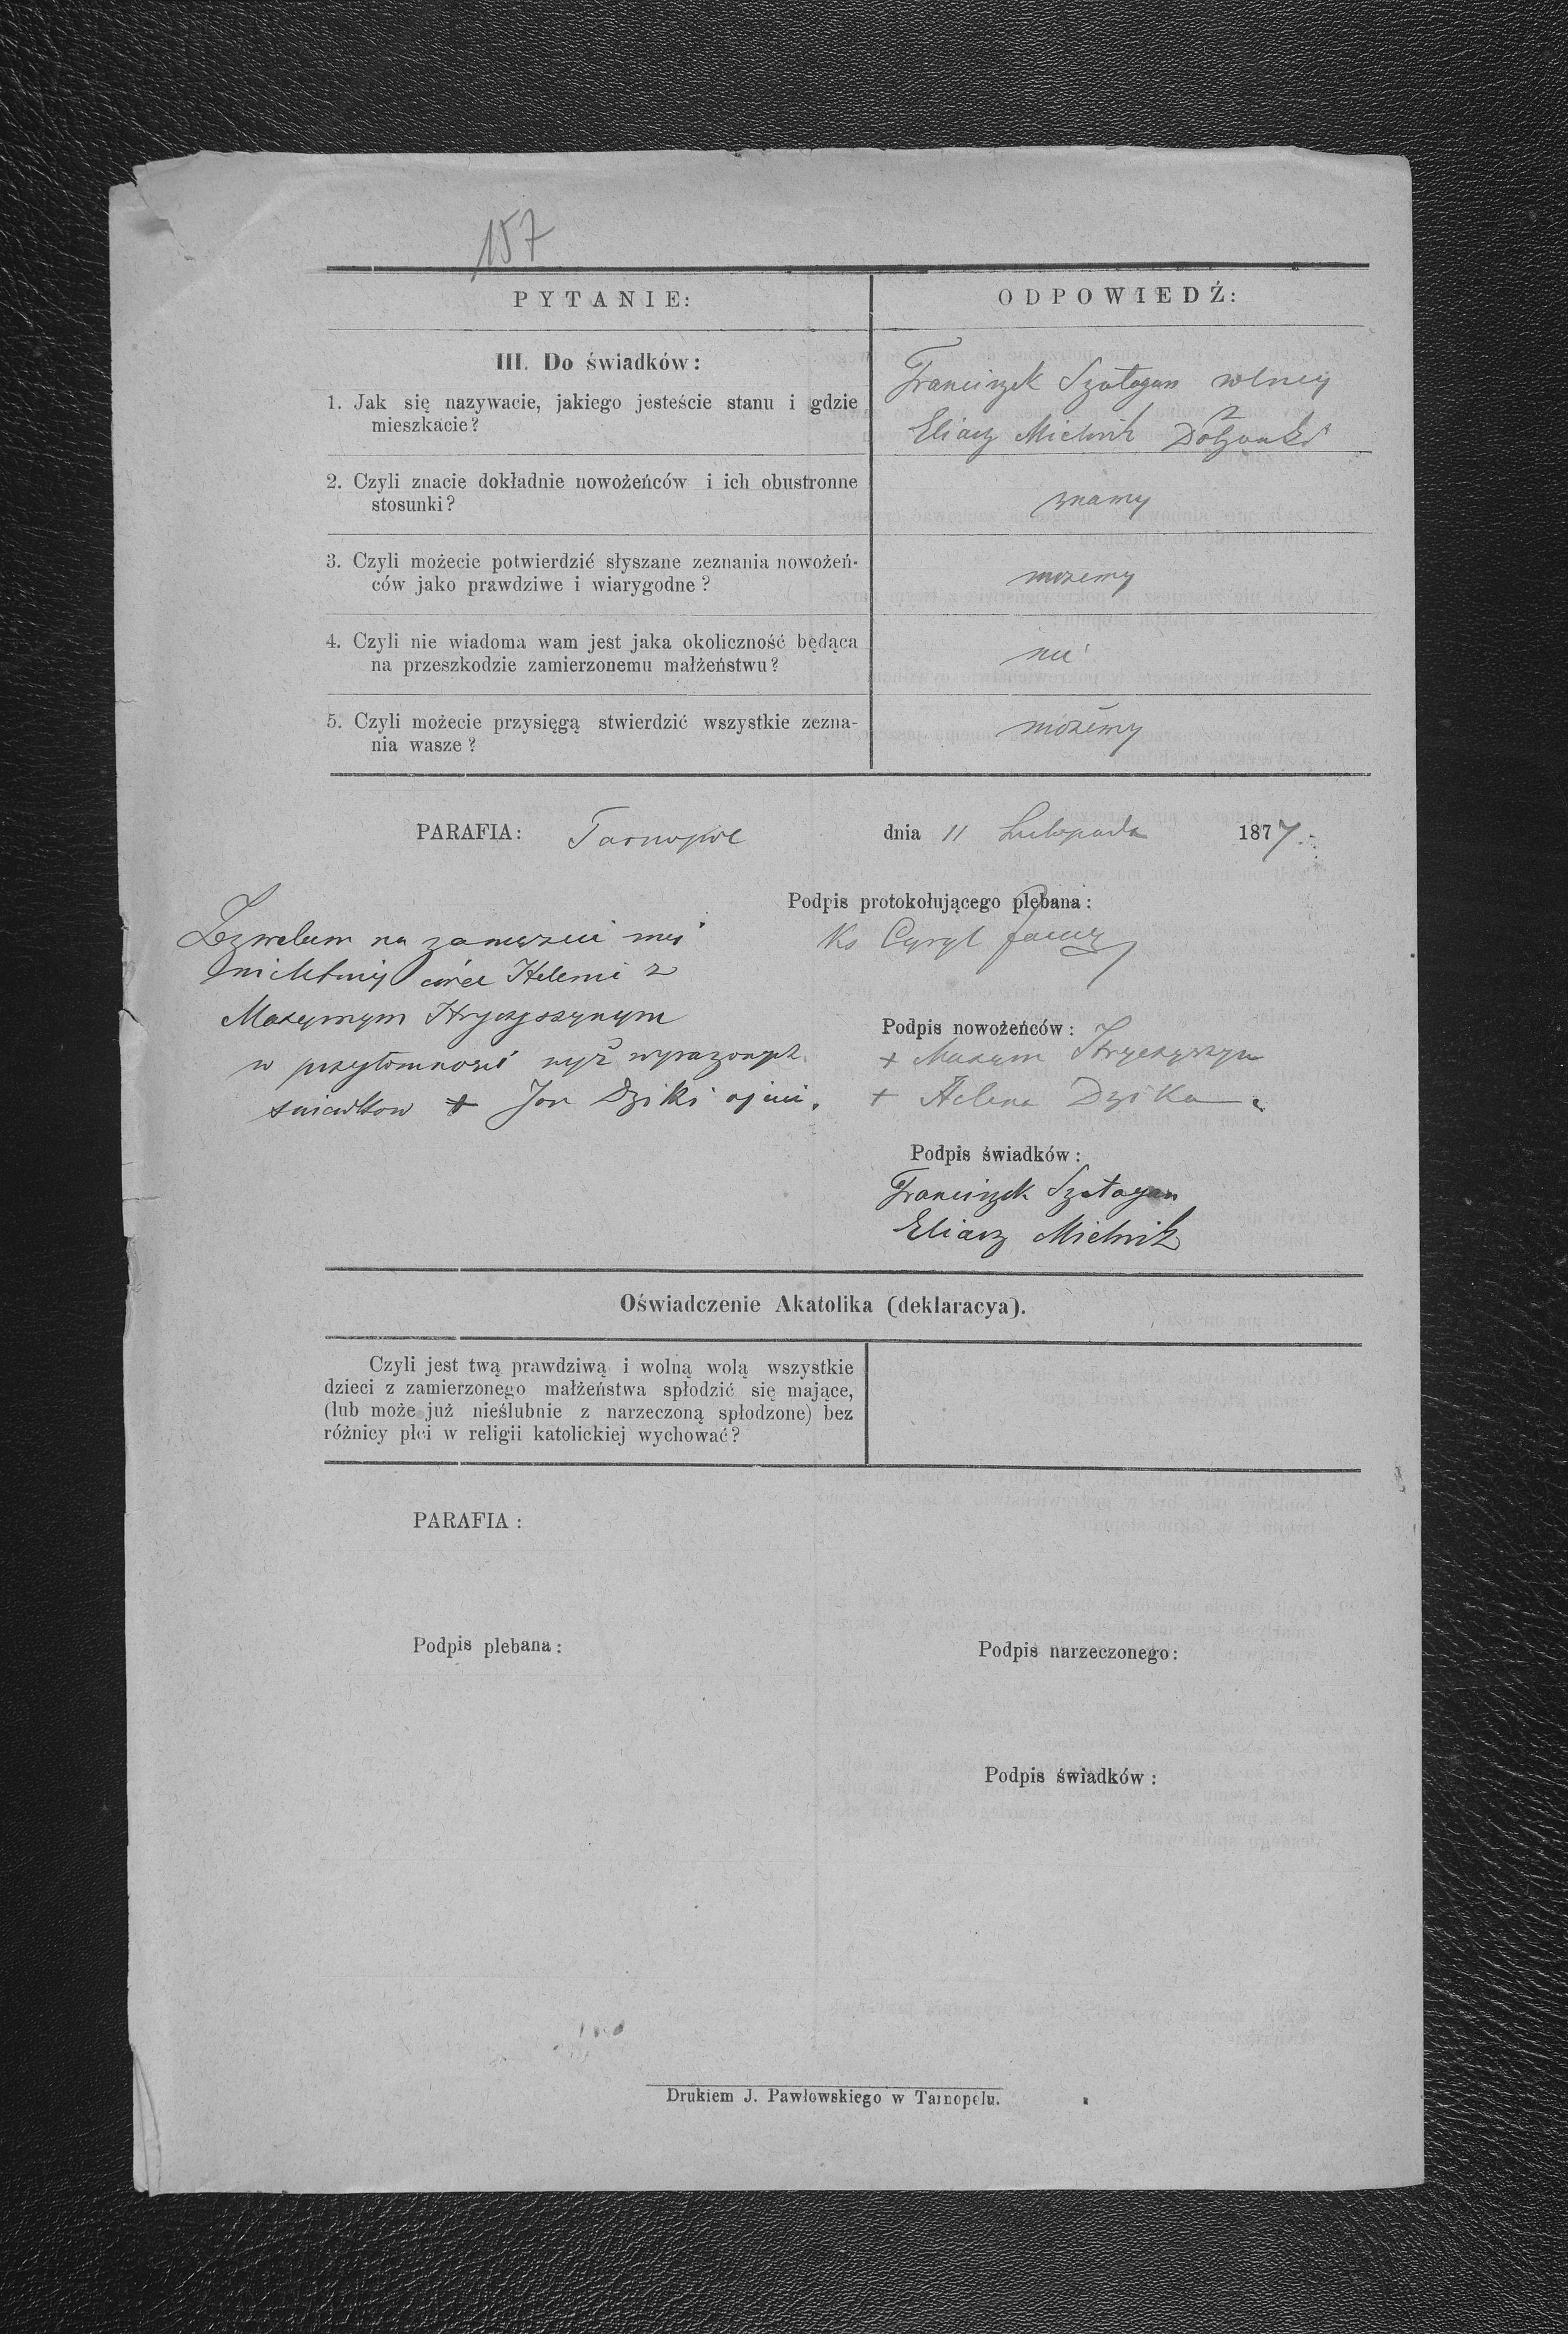 157
PYTANIE:
ODPOWIEDŹ:
III. Do świadków:
1. Jak się nazywacie, jakiego jesteście stanu i gdzie
mieszkacie?
Franciszek Szatagan rolnicy
Eliasz Mielnik z
2. Czyli znacie dokładnie nowożeńców i ich obustronne
stosunki?
znamy
3. Czyli możecie potwierdzić słyszane zeznania nowożeń-
ców jako prawdziwe i wiarygodne?
możemy
4. Czyli nie wiadoma wam jest jaka okoliczność będąca
na przeszkodzie zamierzonemu małżeństwu?
nie
5. Czyli możecie przysięgą stwierdzić wszystkie zezna-
nia wasze?
możemy
PARAFIA: Tarnopol
dnia 11 Listopada 1877.
Podpis protokołującego plebana:
Ks Cyryl
Zezwalam na zamęzcie mej
nieletniej córce Helenie z
Maxymym Hryczyszynym
w przytomności wyż wyrazonych
swiadkow + Jan Dziki ojciec.
Podpis nowożeńców:
+ Maxym Hryczyszyn
+ Helena Dzika
Podpis świadków:
Franciszek Szatagan
Eliasz Mielnik
Oświadczenie Akatolika (deklaracya).
Czyli jest twą prawdziwą i wolną wolą wszystkie
dzieci z zamierzonego małżeństwa spłodzić się mające,
(lub może już nieślubnie z narzeczoną spłodzone) bez
różnicy płci w religii katolickiej wychować?
PARAFIA:
Podpis plebana:
Podpis narzeczonego:
Podpis świadków:
Drukiem J. Pawłowskiego w Tarnopolu.